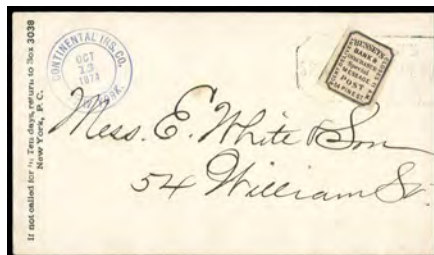 If not called for in Ten days, return to Box 3038
New York, P. C.
CONTINENTAL INS. CO.
OCT
12
1874
YORK.
HUSSEY'S
BANK &
INSURANCE
Special
MESSAGE
POST
54 PINE ST.
Mess. E. White & Son
54 William St.